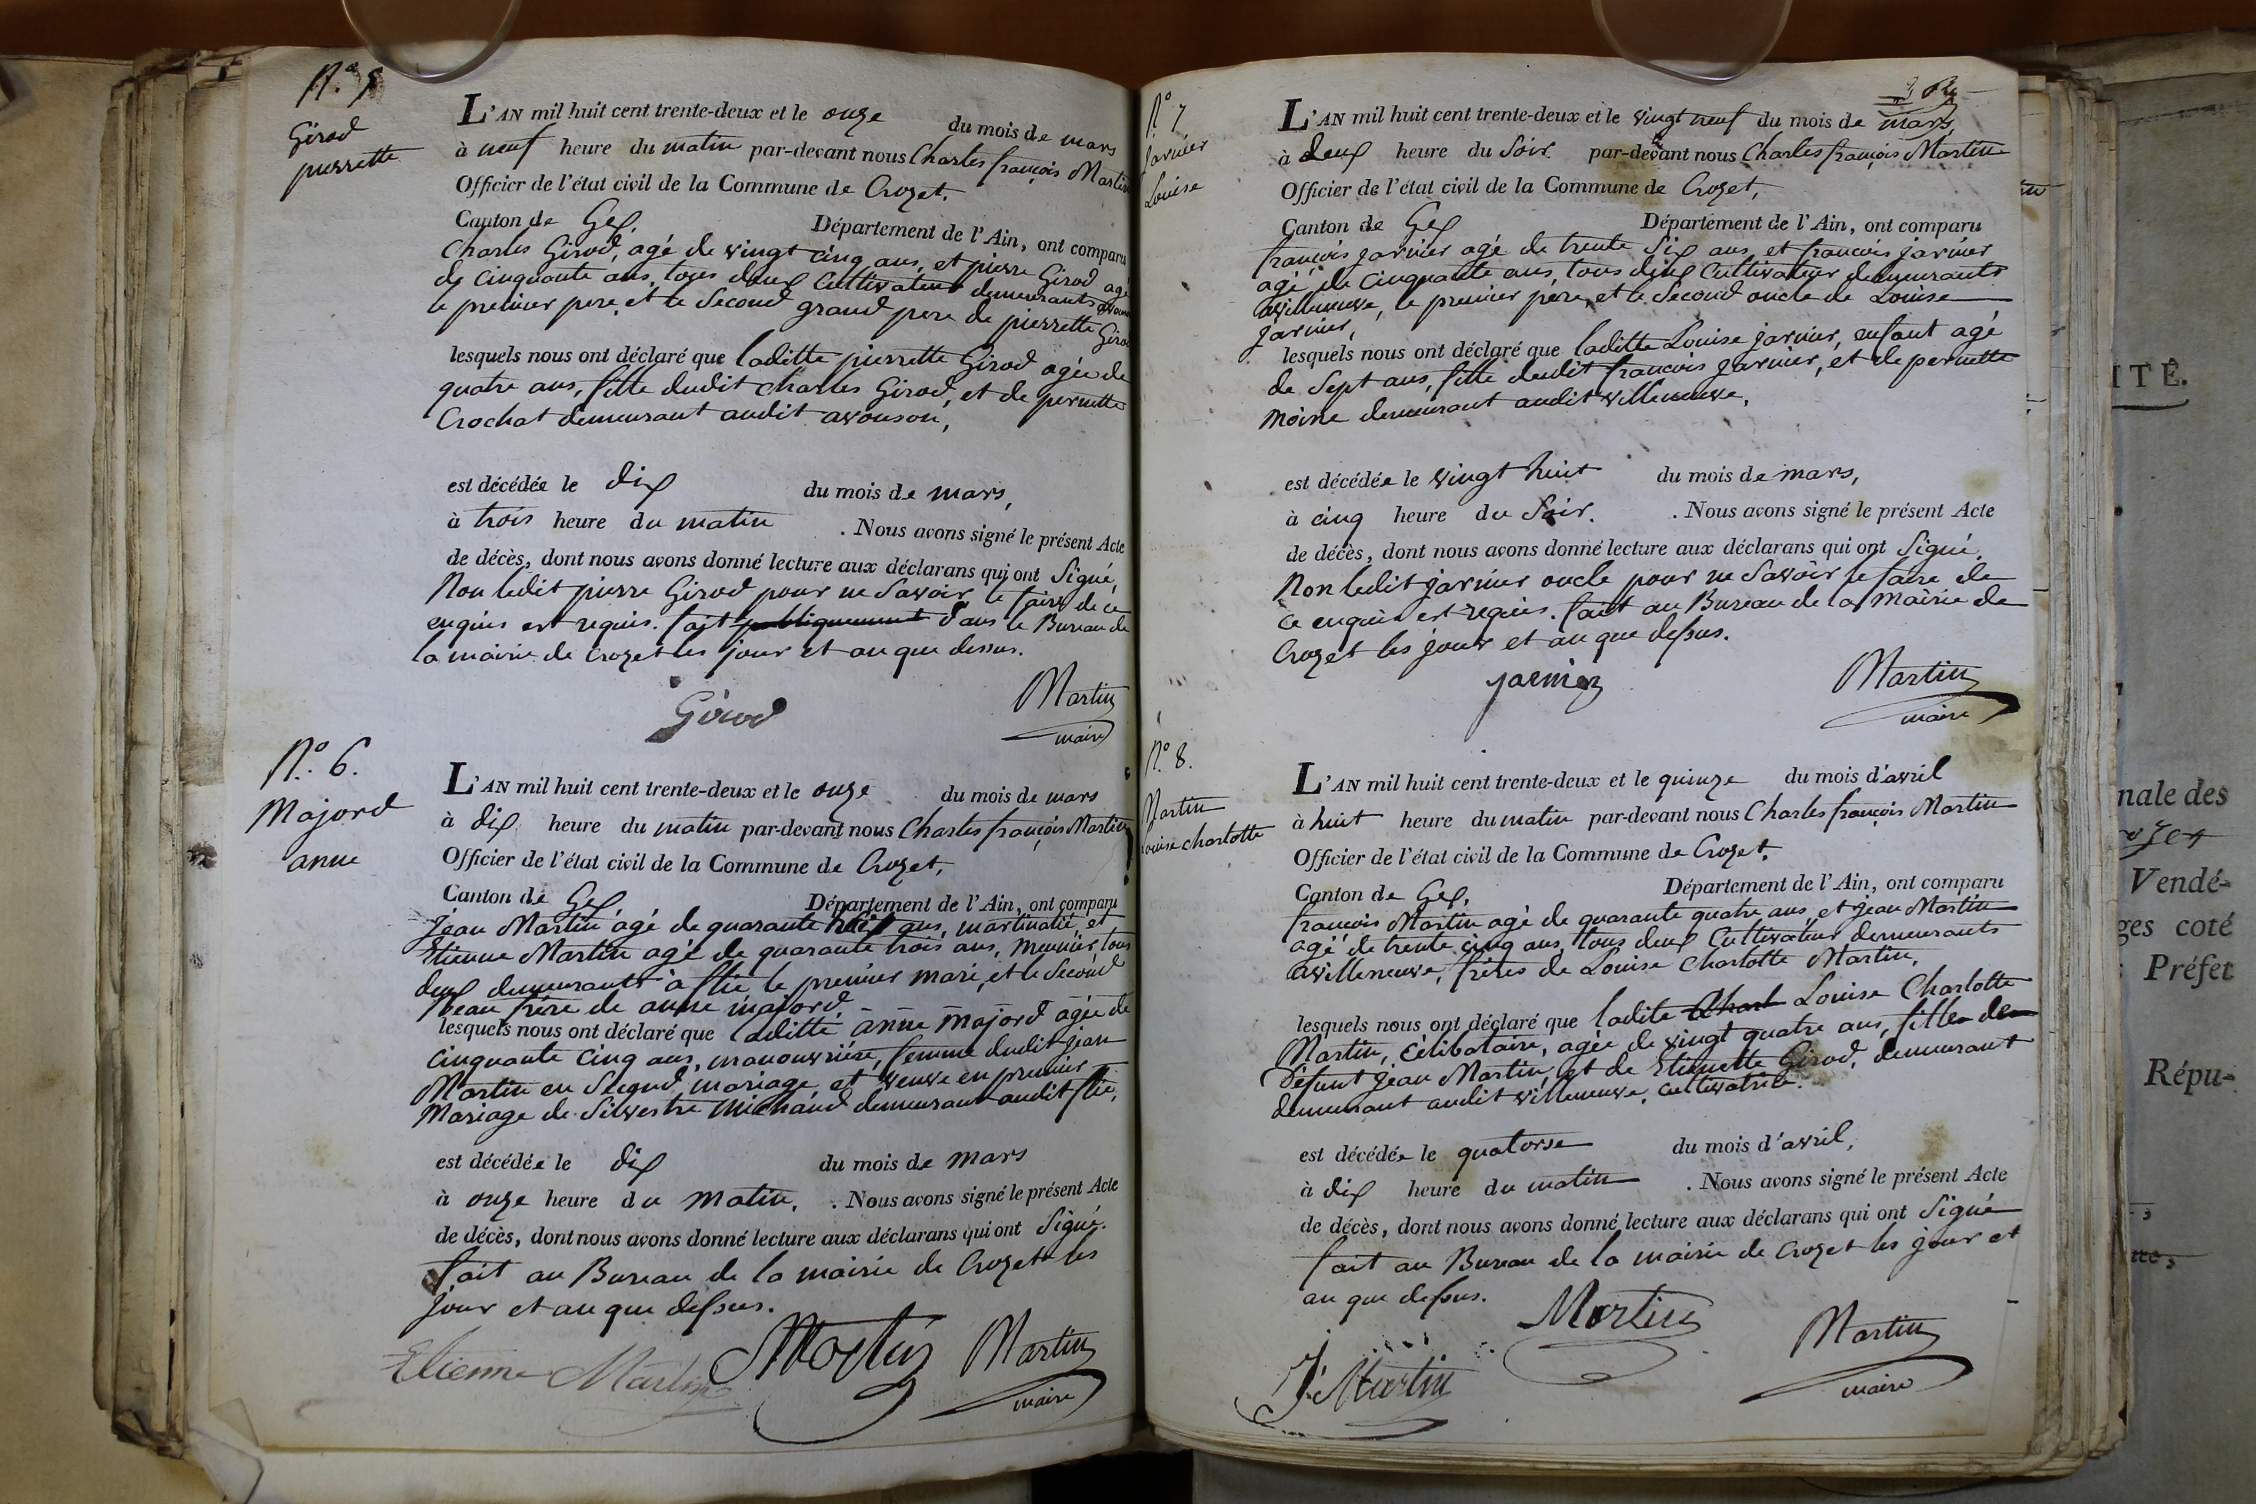 N.° 5
Girod
pierrette
L'AN mil huit cent trente-deux et le onze du mois de mars
à neuf heure du matin par-devant nous Charles françois Martin
Officier de l'état civil de la Commune de Crozet,
Canton de Gex, Département de l'Ain, ont comparu
Charles Girod, agé de vingt cinq ans, et pierre Girod agé
de cinquante ans, tous deux Cultivateur demeurants avouson
le premier pere, et le Second grand pere de pierrette Girod
lesquels nous ont déclaré que laditte pierrette Girod agée de
quatre ans, fille dudit Charles Girod, et de pernette
Crochat demeurant audit avouson,
est décédée le dix du mois de mars,
à trois heure du matin . Nous avons signé le présent Acte
de décès, dont nous avons donné lecture aux déclarans qui ont Signé,
Non ledit pierre Girod pour ne Savoir le faire de ce
enquis est requis. fait publiquement dans le Bureau de
la mairie de Crozet les jour et an que dessus.
Girod
Martin
maire
N.° 6.
Majord
anne
L'AN mil huit cent trente-deux et le onze du mois de mars
à dix heure du matin par-devant nous Charles françois Martin
Officier de l'état civil de la Commune de Crozet,
Canton de Gex Département de l'Ain, ont comparu
Jean Martin agé de quarante huit ans, martinatié, et
Etienne Martin agé de quarante trois ans, Meunier, tous
deux demeurants à flié le premier mari, et le Second
beau frère de anne majord.
lesquels nous ont déclaré que laditte anne Majord agée de
cinquante cinq ans, manouvrière, femme dudit jean
Martin en Second mariage et veuve en premier
Mariage de Silvestre Michaud demeurant audit flié,
est décédée le dix du mois de mars
à onze heure du matin, . Nous avons signé le présent Acte
de décès, dont nous avons donné lecture aux déclarans qui ont Signé.
fait au Bureau de la mairie de Crozet les
jour et an que dessus.
Etienne Martin
Martin
Martin
maire
N.° 7
Jarnier
Louise
L'AN mil huit cent trente-deux et le vingt neuf du mois de mars,
à deux heure du Soir par-devant nous Charles françois Martin
Officier de l'état civil de la Commune de Crozet,
Canton de Gex Département de l'Ain, ont comparu
françois jarnier agé de trente Six ans, et françois jarnier
agé de cinquante ans, tous deux Cultivateur demeurants
avilleneuve, le premier père, et le Second oncle de Louise
Jarnier,
lesquels nous ont déclaré que laditte Louise jarnier, enfant agé
de Sept ans, fille dudit françois Jarnier, et de pernette
Moine demeurant audit villeneuve,
est décédée le vingt huit du mois de mars,
à cinq heure du Soir. . Nous avons signé le présent Acte
de décès, dont nous avons donné lecture aux déclarans qui ont Signé.
Non ledit jarnier oncle pour ne Savoir le faire de
ce enquis est requis. fait au Bureau de la Mairie de
Crozet les jour et an que dessus.
jarnier
Martin
maire
N.° 8.
Martin
Louise charlotte
L'AN mil huit cent trente-deux et le quinze du mois d'avril
à huit heure du matin par-devant nous Charles françois Martin
Officier de l'état civil de la Commune de Crozet,
Canton de Gex, Département de l'Ain, ont comparu
françois Martin agé de quarante quatre ans, et jean Martin
agé de trente cinq ans, tous deux Cultivateur demeurants
avilleneuve, frères de Louise Charlotte Martin,
lesquels nous ont déclaré que ladite Charl Louise Charlotte
Martin, célibataire, agée de vingt quatre ans, fille de
Défunt jean Martin, et de Etiennette Girod, demeurant
demeurant audit villeneuve, cultivatrice.
est décédée le quatorse du mois d'avril,
à dix heure du matin . Nous avons signé le présent Acte
de décès, dont nous avons donné lecture aux déclarans qui ont Signé
fait au Bureau de la mairie de Crozet les jour et
an que dessus.
Martin
J. Martin
Martin
maire
ITÉ.
nale des
Vendé-
ges coté
Préfet
Répu-